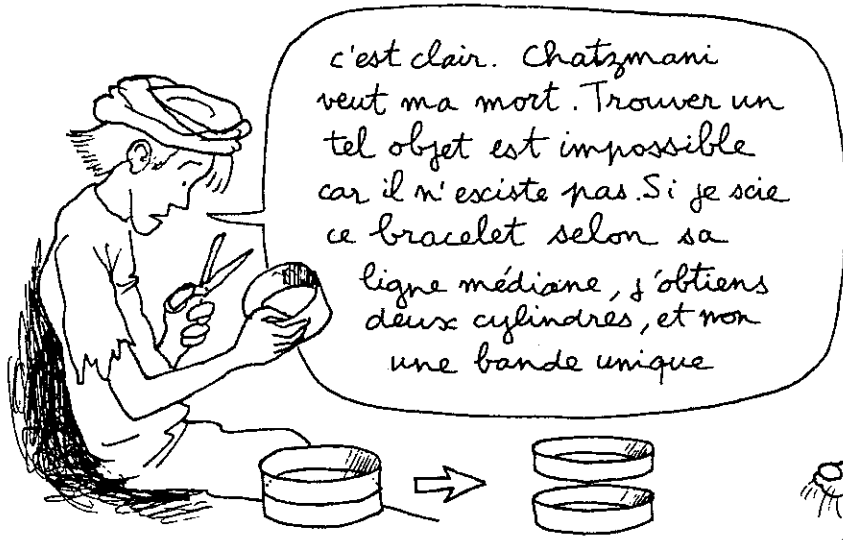 c'est clair. Chatzmani
veut ma mort. Trouver un
tel objet est impossible
car il n'existe pas. Si je scie
ce bracelet selon sa
ligne médiane, j'obtiens
deux cylindres, et non
une bande unique